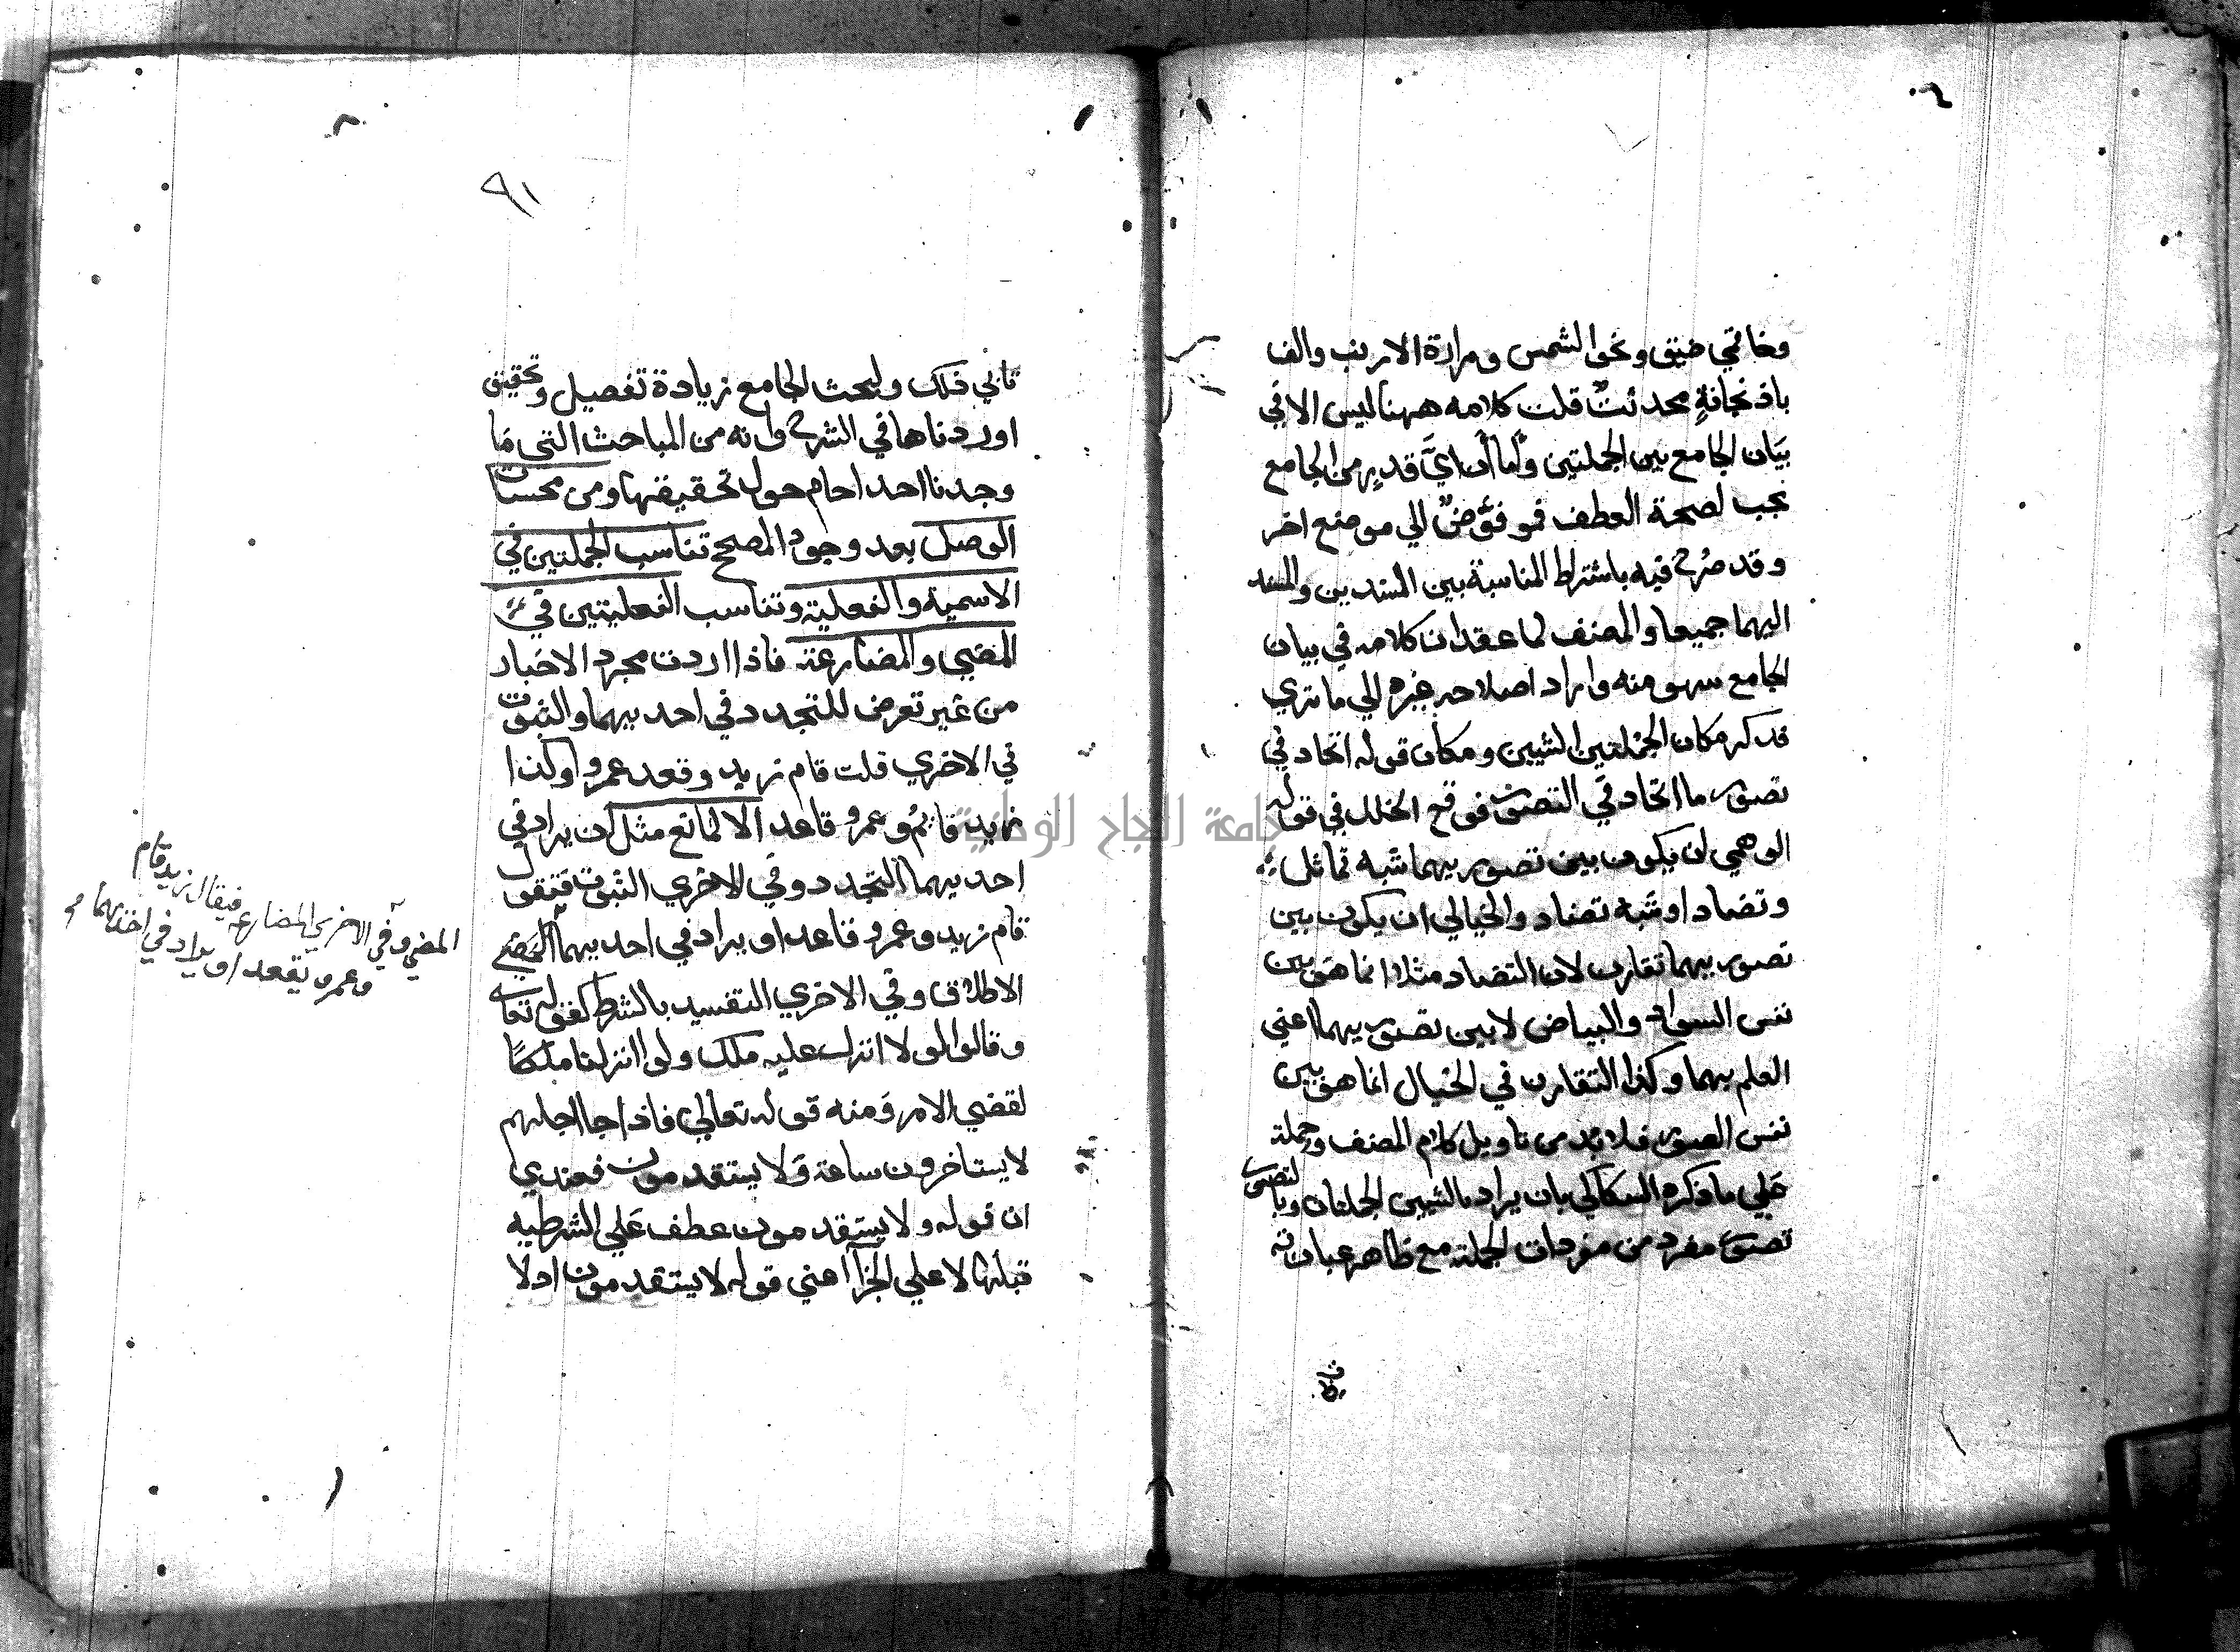 وخاتمي ضيق ونحو الشمس ومرارة الارنب والف
باذنجانةٍ محدثة قلت كلامه ههنا ليس الا في
بيان الجامع بين الجملتين واما ان اي قدرٍ من الجامع
يجب لصحة العطف فمفوض الي موضع اخر
وقد صرح فيه باشتراط المناسبة بين المسندين والمسند
اليهما جميعا والمصنف لما عقد ان كلامه في بيان
الجامع سهو منه واراد اصلاحه غيره الي ما تري
فذكر مكان الجملتين الشيين ومكان قوله اتحاد في
تصور ما اتحاد في التصور فوقع الخلل في قوله
الوهمي ان يكون بين تصوريهما شبه تماثل
وتضاد او شبه تضاد والخيالي ان يكون بين
تصوريهما تقارن لان التضاد مثلا انما هو بين
نفس السواد والبياض لا بين تصوريهما اعني
العلم بهما وكذا التقارن في الخيال انما هو بين
نفس الصور فلا بد من تاويل كلام المصنف وحمله
علي ما ذكره السكاكي بان يراد بالشيين الجملتان وبالتصور
تصور مفرد من مفردات الجملة مع ظاهر عبارته
٩١
تابي ذلك ولبحث الجامع زيادة تفصيل وتحقيق
اوردناها في الشرح وانه من المباحث التي ما
وجدنا احدا حام حول تحقيقها ومن محسنات
الوصل بعد وجود المصحح تناسب الجملتين في
الاسمية والفعلية وتناسب الفعليتين في
المضي والمضارعة فاذا اردت مجرد الاخبار
من غير تعرض للتجدد في احديهما والثبوت
في الاخري قلت قام زيد وقعد عمرو وكذا
زيد قائم وعمرو قاعد الا لمانع مثل ان يراد في
احديهما التجدد وفي الاخري الثبوت فتقول
قام زيد وعمرو قاعد او يراد في احديهما المضي
الاطلاق وفي الاخري التقييد بالشرط كقوله تعالي
وقالوا لولا انزل عليه ملك ولو انزلنا ملكًا
لقضي الامر ومنه قوله تعالي فاذا جا اجلهم
لا يستاخرون ساعة ولا يستقدمون فعندي
ان قوله ولا يستقدمون عطف علي الشرطيه
قبلها لا علي الجزآ اعني قوله لا يستقدمون اذ لا
المضي وفي الاخري المضارعة فيقال زيد قام
وعمرو يقعد او يراد في احديهما
جامعة النجاح الوطنية